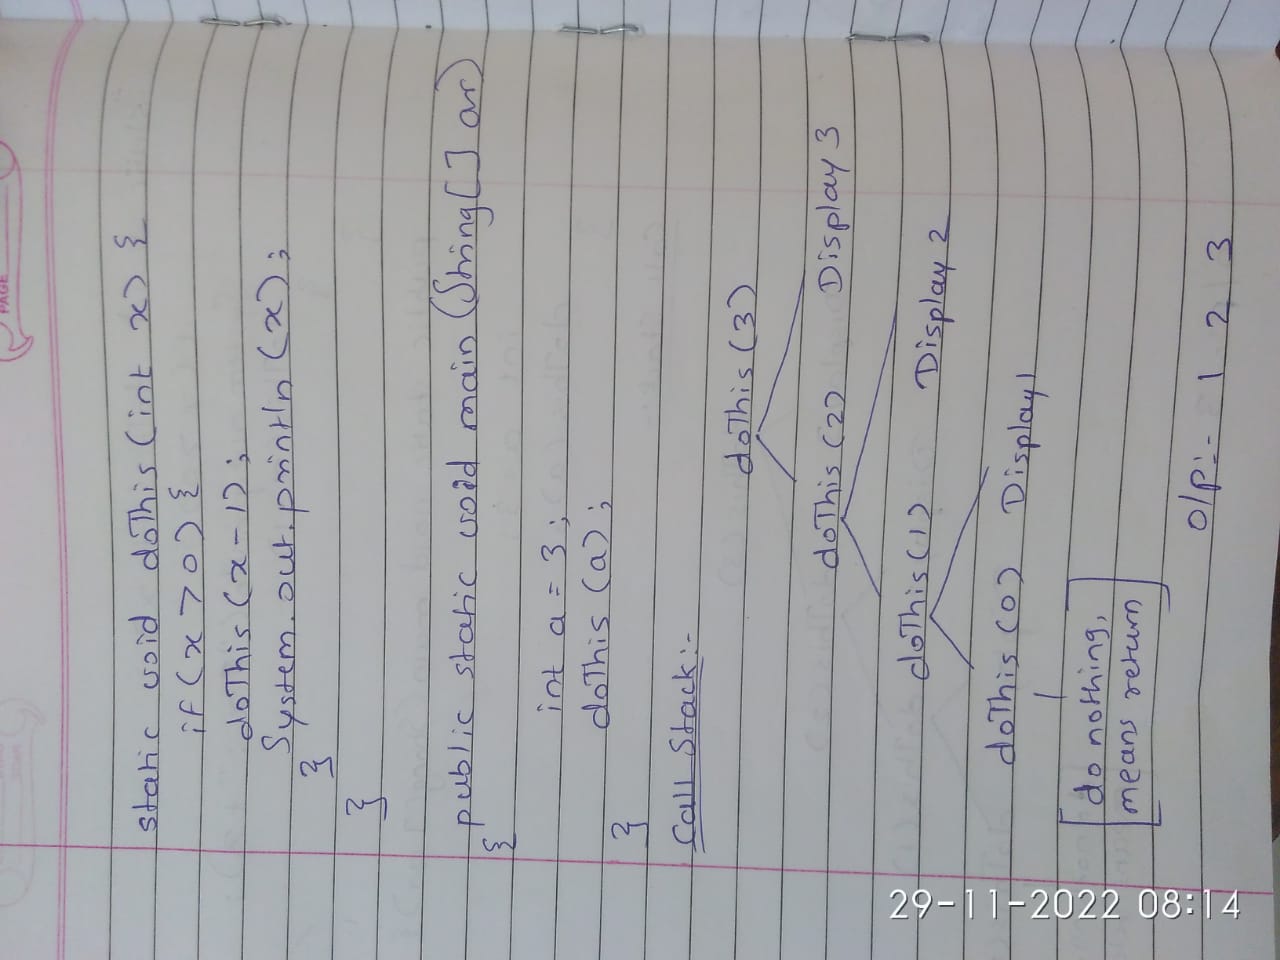 PAGE
static void doThis (int x) {
if (x > 0) {
doThis (x - 1);
System.out.println (x);
}
}
public static void main (String [] ar)
{
int a = 3;
doThis (a);
}
Call Stack:-
doThis (3)
doThis (2) Display 3
doThis (1) Display 2
doThis (0) Display 1
do nothing,
means return
o/p:- 1 2 3
29-11-2022 08:14